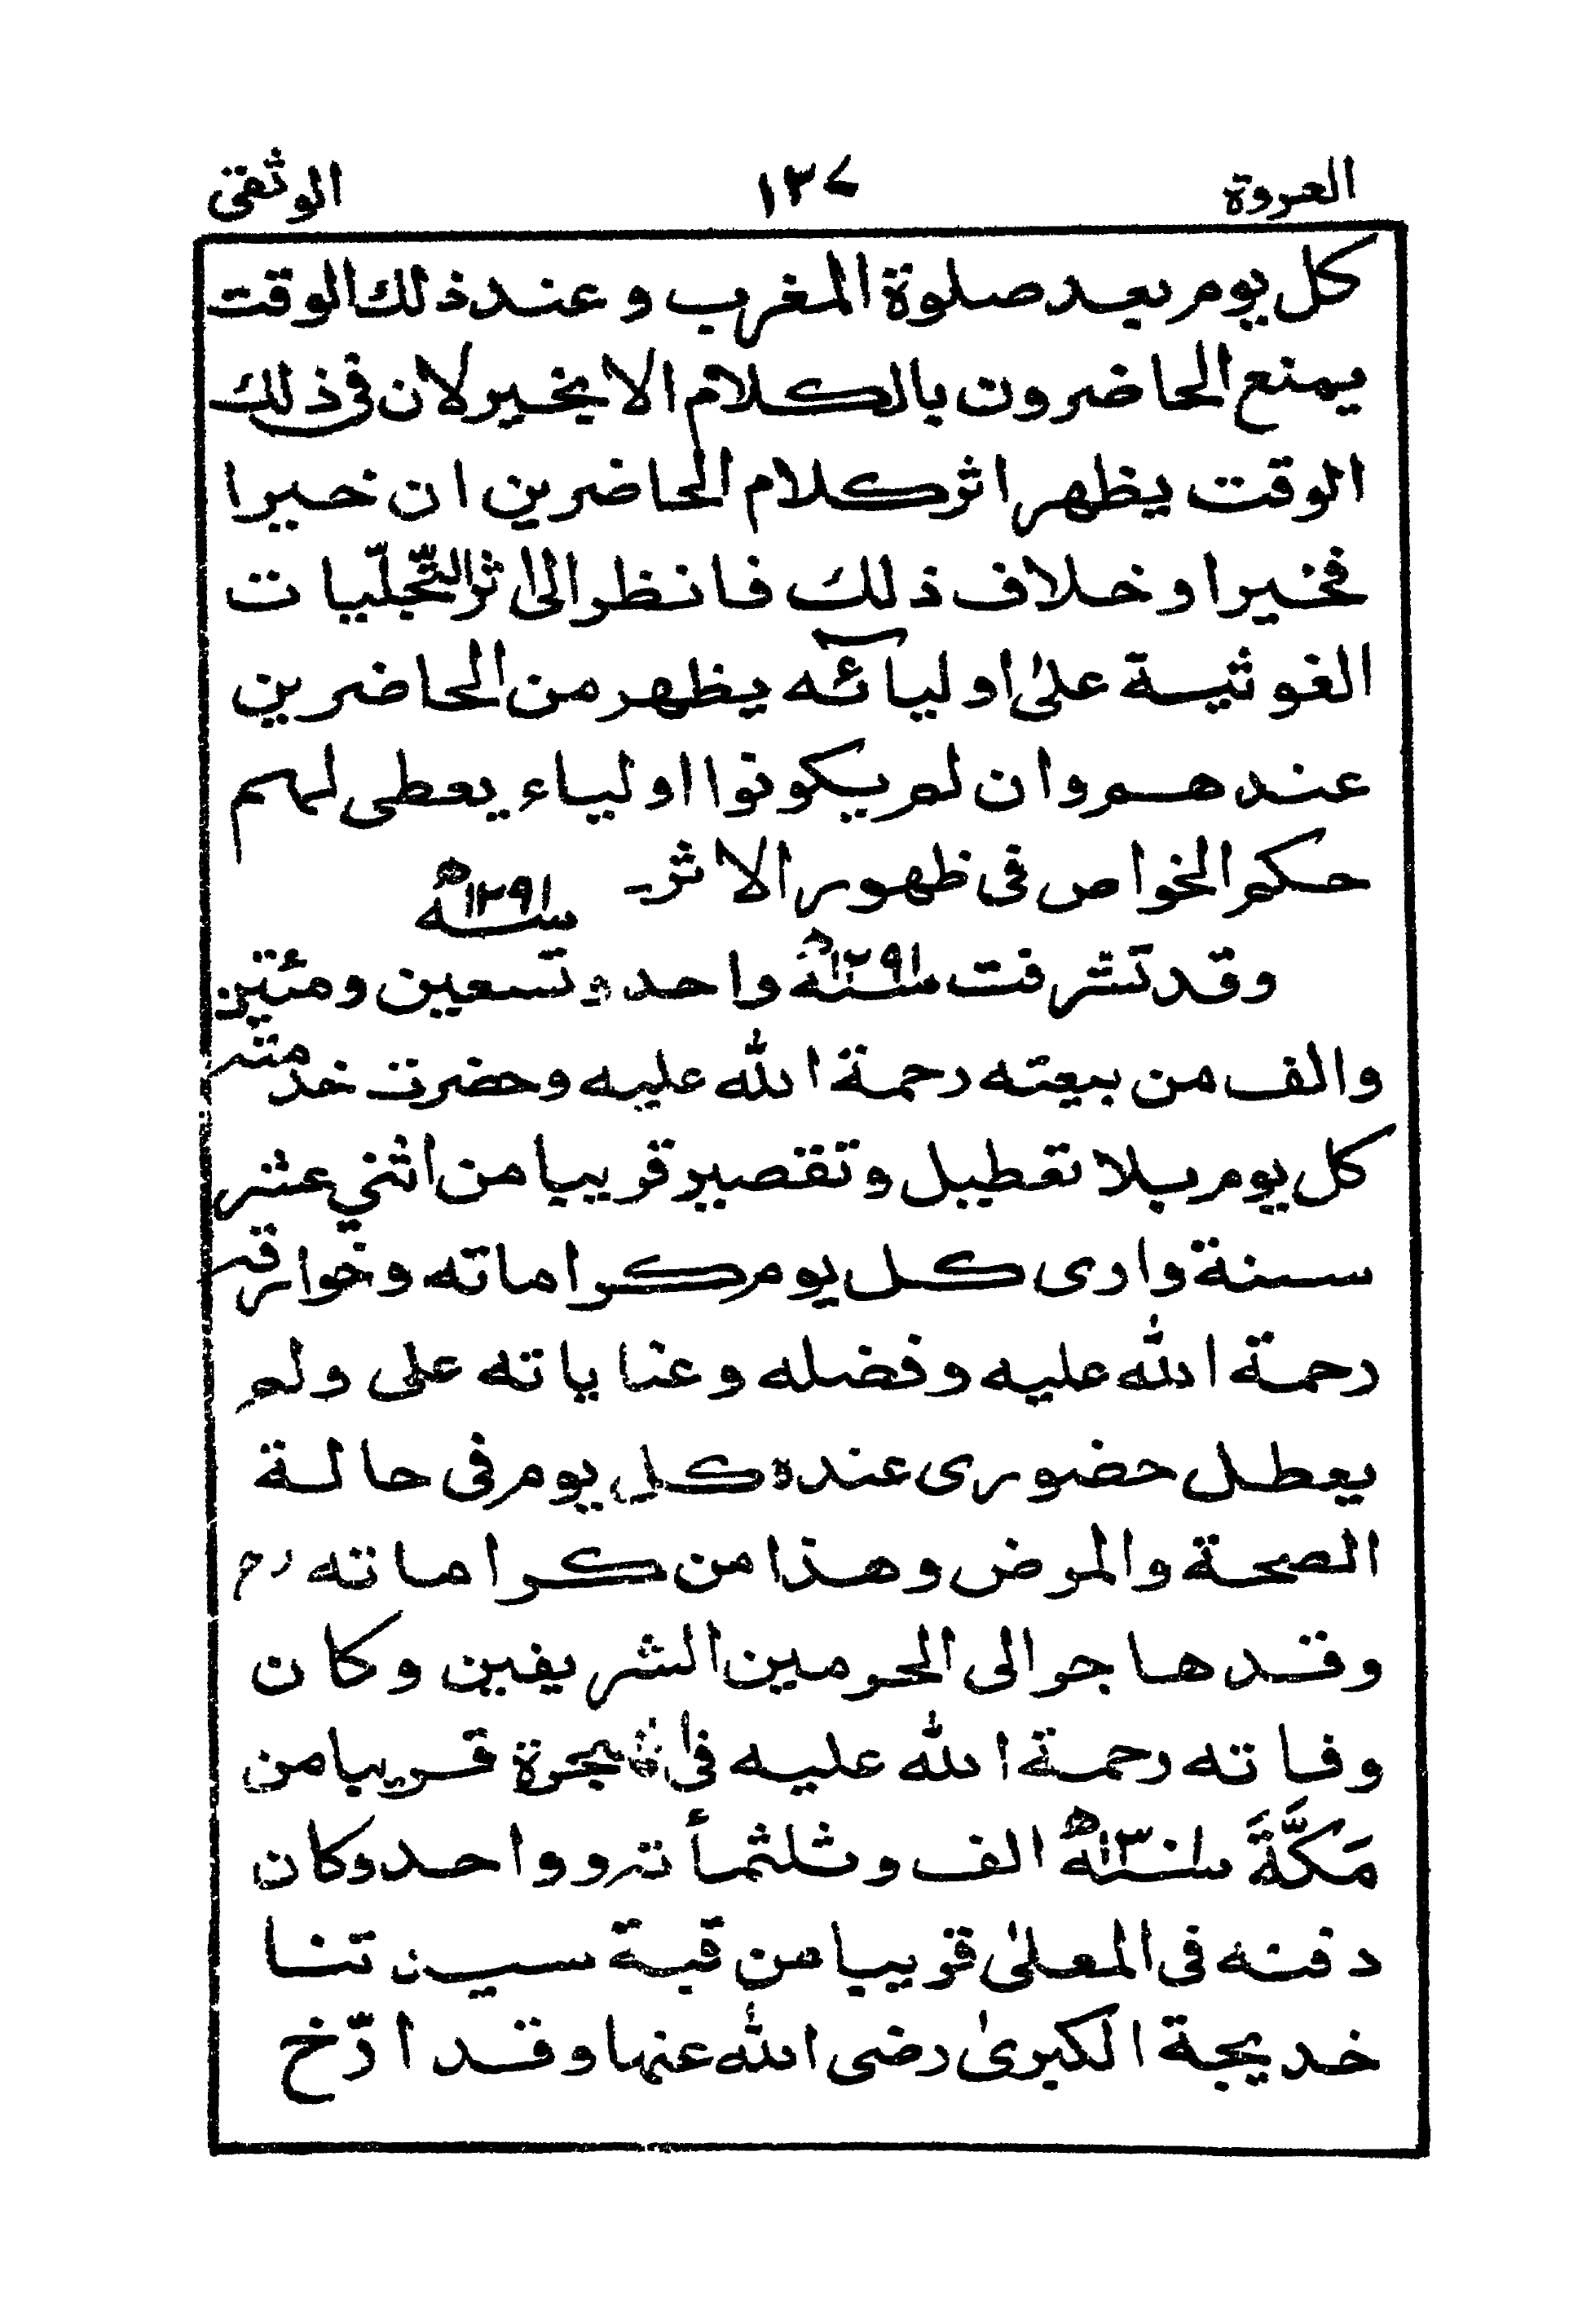 العروة ١٣٧ الوثقى
كل يوم بعد صلوة المغرب وعند ذلك الوقت
يمنع الحاضرون بالكلام الا بخير لان فى ذلك
الوقت يظهر اثر كلام الحاضرين ان خيرا
فخيرا وخلاف ذلك فانظر الى اثر التّجلّيات
الغوثية علىٰ اوليآئه يظهر من الحاضرين
عندهم وان لم يكونوا اولياء يعطى لهم
حكم الخواص فى ظهور الاثر۔ سنه ١٢٩١ھ
وقد تشرفت سنه ١٢٩١ھ واحد وتسعين ومئتين
والف من بيعته رحمة الله عليه وحضرت خدمته
كل يوم بلا تعطيل وتقصير قريبا من اثني عشر
سنة وارى كل يوم كراماته وخوارقه
رحمة الله عليه وفضله وعناياته على ولم
يعطل حضورى عنده كل يوم فى حالة
الصحة والمرض وهذا من كراماته رح
وقد هاجر الى الحرمين الشريفين وكان
وفاته رحمة الله عليه فى بحرة قريبا من
مَكَّةَ سنه ١٣٠١ھ الف وثلثمأته وواحد وكان
دفنه فى المعلىٰ قريبا من قبة سيدتنا
خديجة الكبرىٰ رضى الله عنها وقد ادّخ